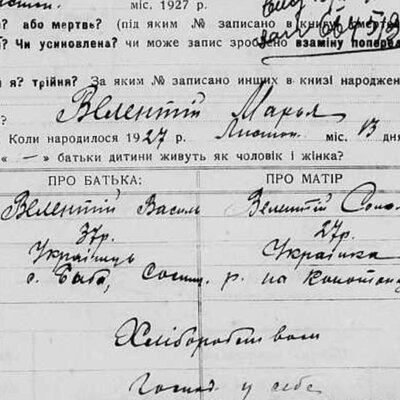 міс. 1927 г.
а? або мертвь? (під яким № записано в книгу смерте
і? Чи усиновлена? чи може запис зроблено взаміну поперед
я? трійня? За яким № записано инших в книзі народжен
?
Велентій Марья
Коли народилося 1927 р. Листоп. міс. 13 дня
« — » батьки дитини живуть як чоловік і жінка?
ПРО БАТЬКА: ПРО МАТІР
Велентій Василь Велентій Соф
37р. 27р.
Українець Українка
с. Баба, Сосниц. р. на Конотоп
Хліборобством
Господ. у себе